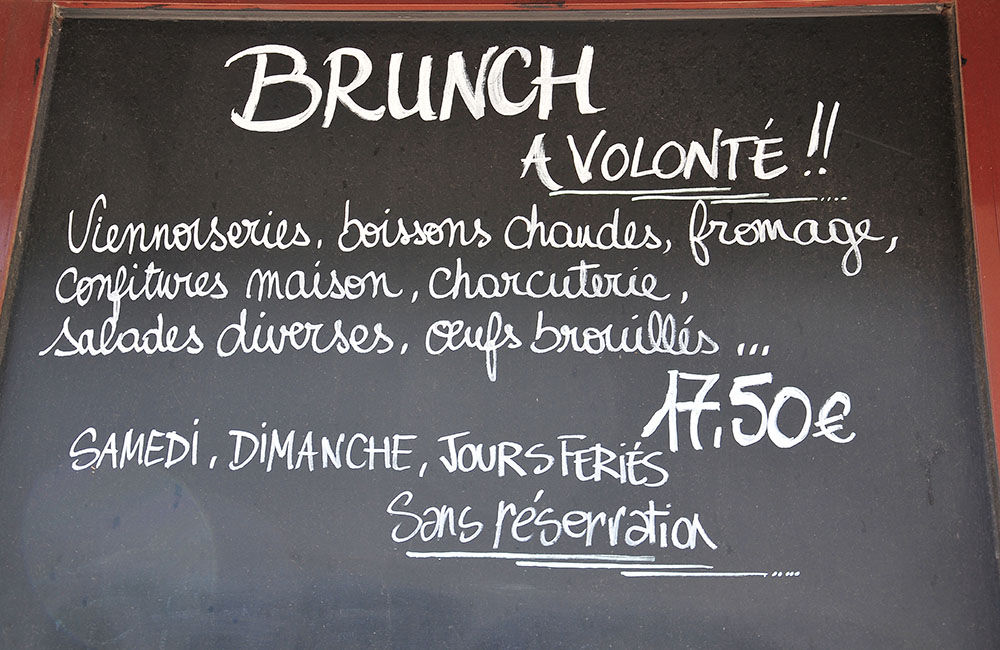 BRUNCH
A VOLONTÉ !!
Viennoiseries, boissons chaudes, fromage,
confitures maison, charcuterie,
salades diverses, œufs brouillés ...
17,50€
SAMEDI, DIMANCHE, JOURS FERIÉS
Sans réservation